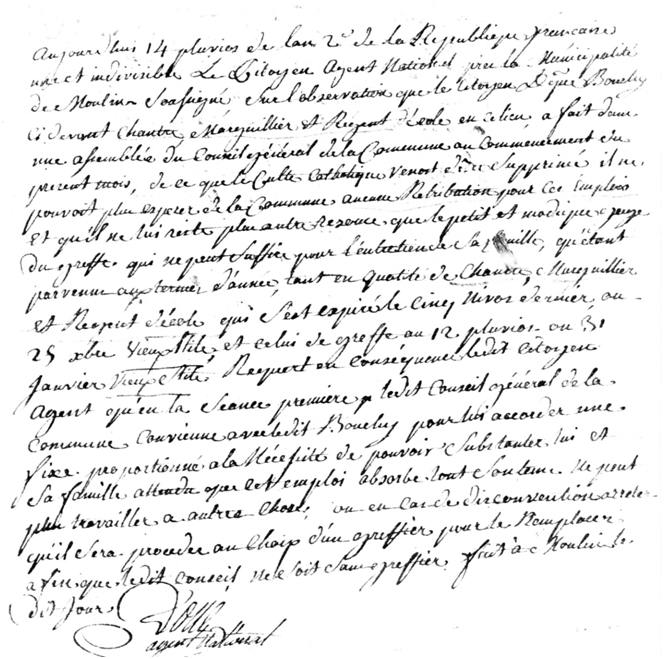 Aujourdhui 14 pluvios de lan 2e de la Republique francaise
une et indivisible Le Citoyen Agent National pres la Municipalité
de Moulin Soufugné Sur l'observation que le Citoyen Bouchy
Ci devant Chantre, Marguillier et Regent d'école en ce lieu, a fait dans
une assemblée du Conseil général de la Commune au Commencement du
present mois, de ce que le Culte Catholique venoit d'etre Supprimé il ne
pouvoit plus esperer de la Commune aucune Retribution pour ces Emplois
Et qu'il ne lui reste plus autre resource que le petit et modique
du greffe qui ne peut Suffire pour l'entretien de Sa famille, qu'étant
parvenu aux termes d'année, tant en qualité de Chantre, Marguillier
et Regent d'école qui s'est expiré le Cinq Nivos dernier, ou
25 xbre Vieux Stile, et celui de greffe au 12 pluvios ou 31
Janvier Vieux Stile, Requert en Conséquence ledit Citoyen
Agent qu'en la Seance premiere ledit Conseil général de la
Commune Convienne avec ledit Bouchy pour lui accorder une
fixe proportionné a la Nécessité de pouvoir Substanter lui et
Sa famille attendu que cet emploi absorbe tout Son tems ne peut
plus travailler a autre Chose, ou en Cas de disconvention arreter
qu'il Sera procedé au Choix d'un greffier pour le Remplacer
afin que ledit Conseil ne Soit Sans greffier fait à Moulin le
dit Jour
agent National